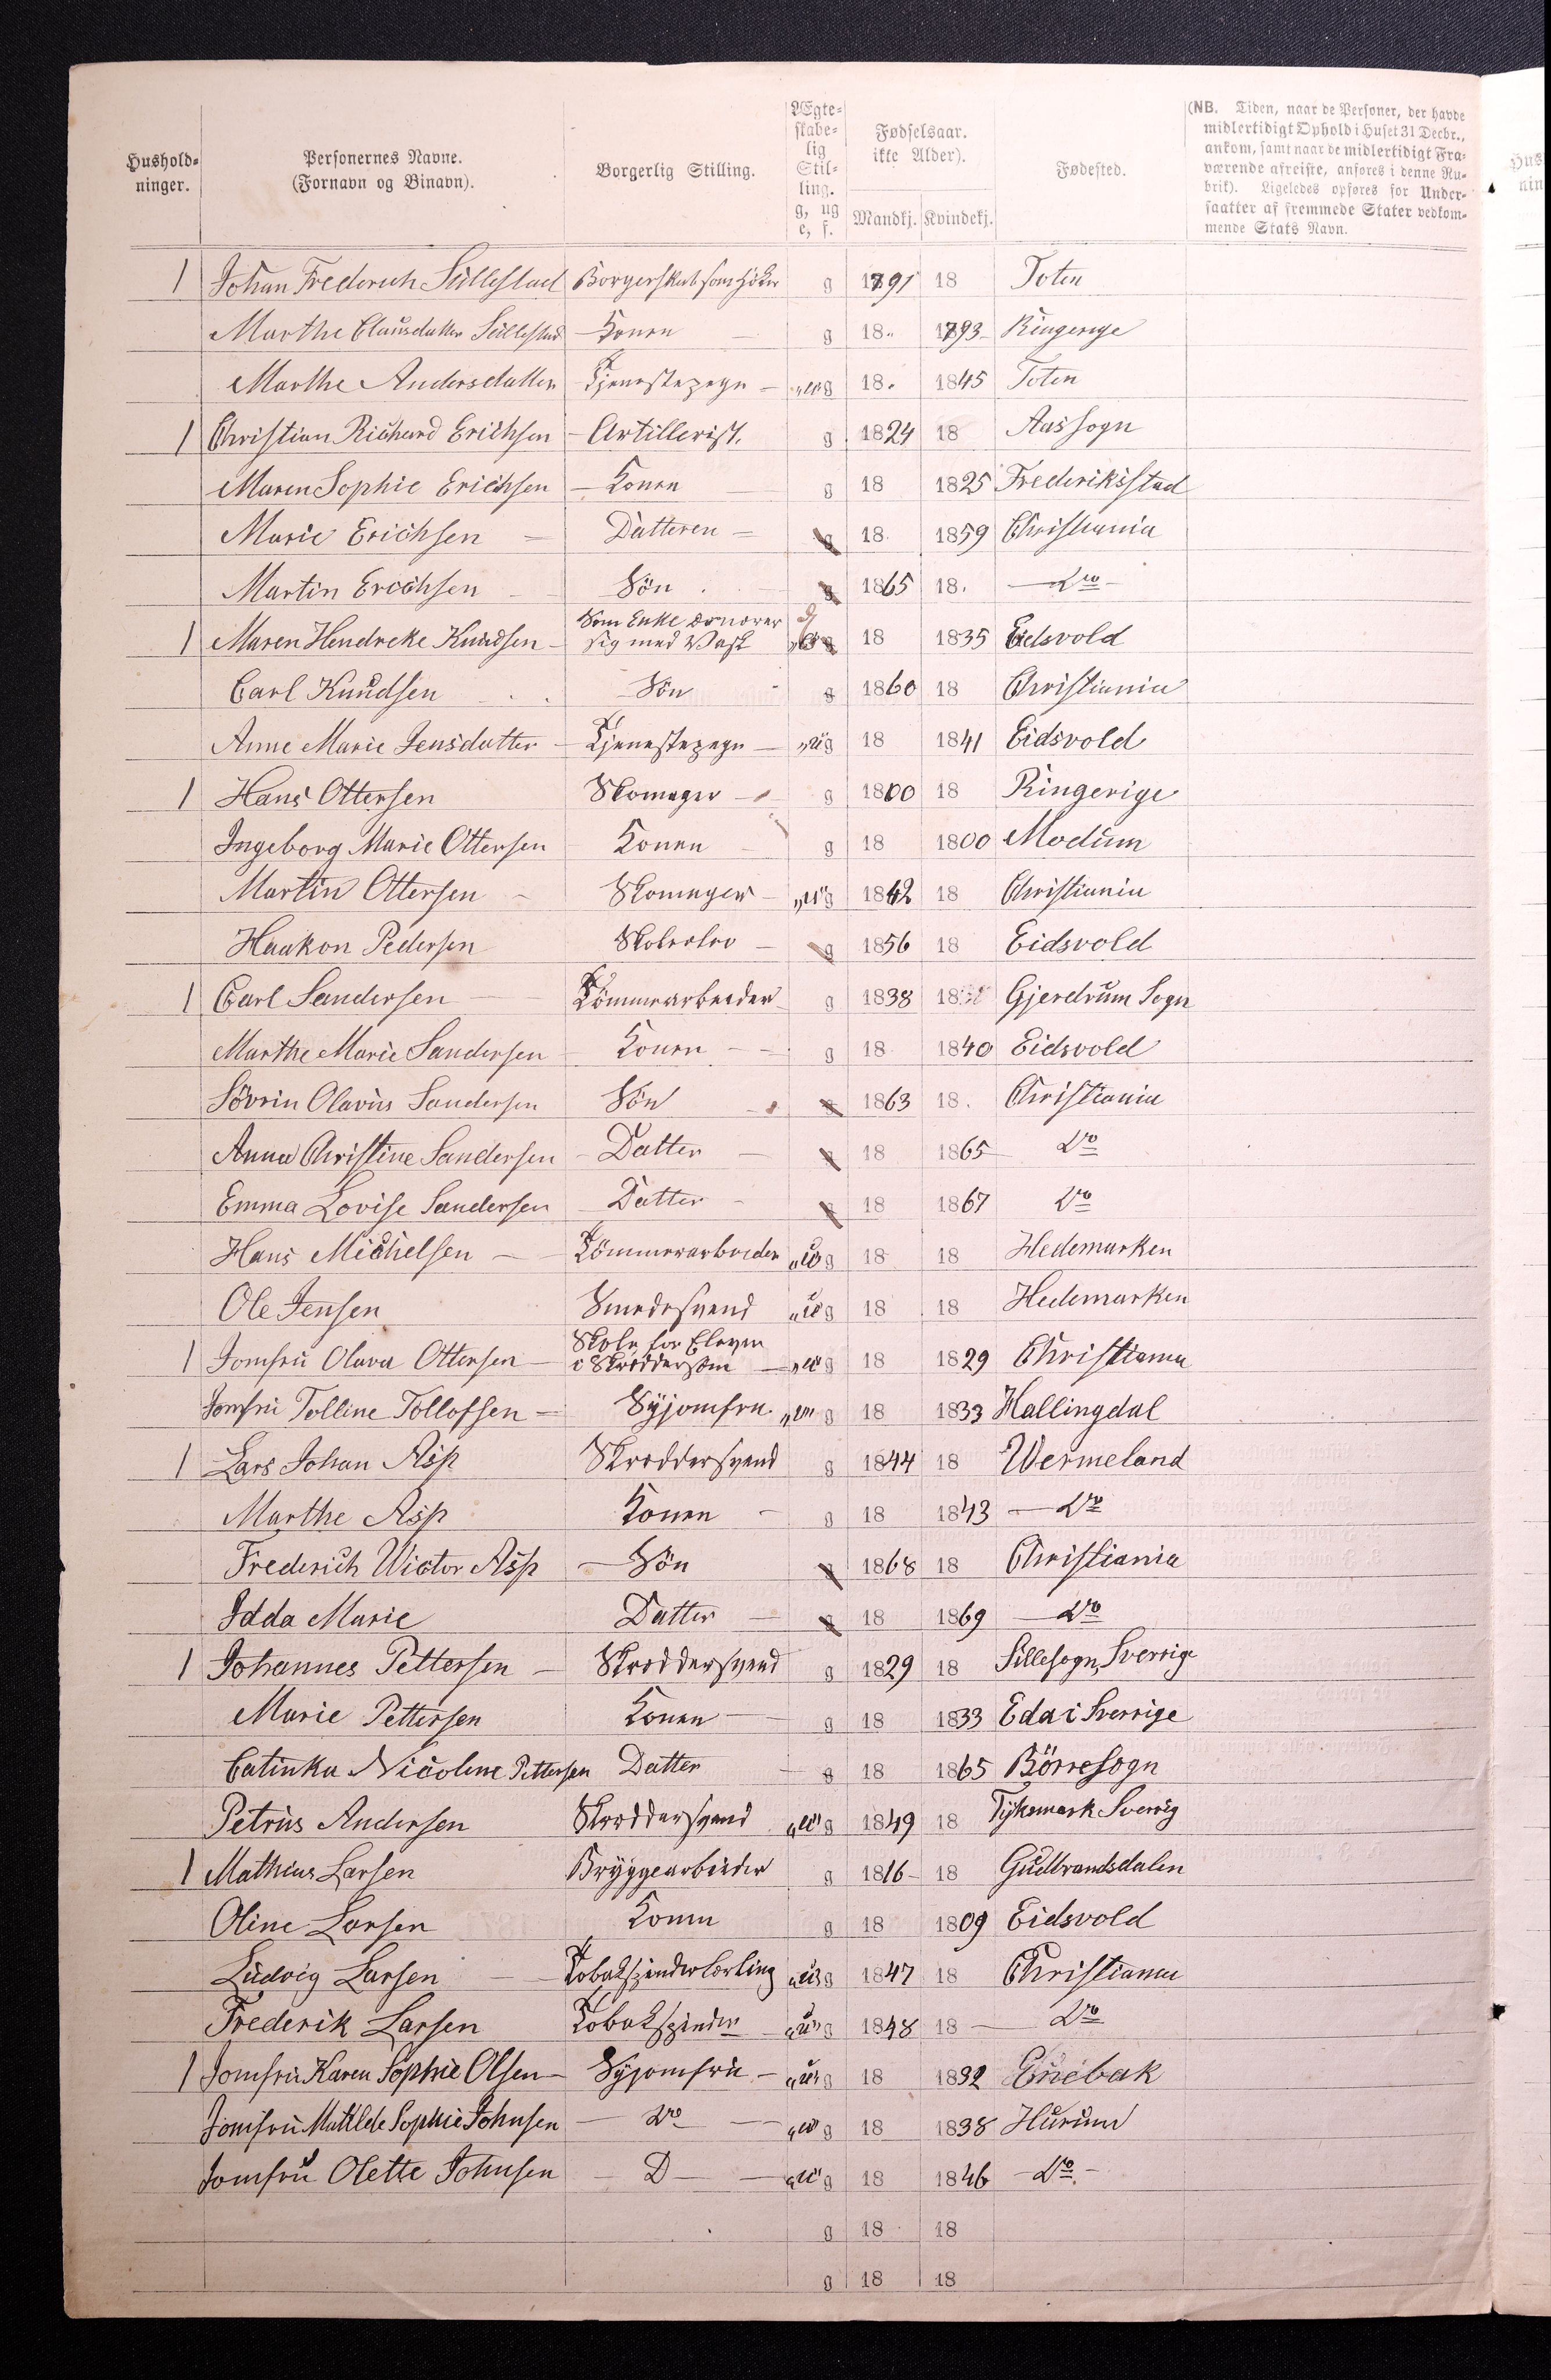 Hushold-
ninger.
Personernes Navne.
(Fornavn og Binavn).
Borgerlig Stilling.
Ægte-
skabe-
lig
Stil-
ling.
g, ug
e, f.
Fødselsaar.
ikke Alder).
Mandkj. Kvindekj.
Fødested.
(NB. Tiden, naar de Personer, der havde
midlertidigt Ophold i Huset 31 Decbr.,
ankom, samt naar de midlertidigt Fra-
værende afreiste, anføres i denne Ru-
brik). Ligeledes opføres for Under-
saatter af fremmede Stater vedkom-
mende Stats Navn.
1 Johan Frederich Sillestad Borgerskab som Höker g 1791 18 Toten
Marthe Clausdatter Sillestad Konen g 18 1793 Ringerige
Marthe Andersdatter Tjenestepige ug 18 1845 Toten
1 Christian Richard Erichsen Artillerist. g 1824 18 Aas Sogn
Maren Sophie Erichsen Konen g 18 1825 Frederiksstad
Marie Erichsen Datteren g 18 1859 Christiania
Martin Erichsen Sön g 1865 18 Do
1 Maren Hendreke Knudsen Som Enke ernærer
sig med Vask e g 18 1835 Eidsvold
Carl Knudsen Sön g 1860 18 Christiania
Anne Marie Jensdatter Tjenestepige ug 18 1841 Eidsvold
1 Hans Ottersen Skomager g 1800 18 Ringerige
Ingeborg Marie Ottersen Konen g 18 1800 Modum
Martin Ottersen Skomager ug 1842 18 Christiania
Haakon Pedersen Skoleelev g 1856 18 Eidsvold
1 Carl Sandersen Tömmerarbeider g 1838 18 Gjerdrum Sogn
Marthe Marie Sandersen Konen g 18 1840 Eidsvold
Sövrin Olavus Sandersen Sön g 1863 18 Christiania
Anna Christine Sandersen Datter g 18 1865 Do
Emma Lovise Sandersen Datter g 18 1867 Do
Hans Michelsen Tömmerarbeider ug 18 18 Hedemarken
Ole Jensen Smedesvend ug 18 18 Hedemarken
1 Jomfru Olava Ottersen Skole for Elever
i Skræddersöm ug 18 1829 Christiania
Jomfru Tolline Tollofsen Syjomfru ug 18 1833 Hallingdal
1 Lars Johan Asp Skræddersvend g 1844 18 Wermeland
Marthe Asp Konen g 18 1843 Do
Frederich Wictor Asp Sön g 1868 18 Christiania
Idda Marie Datter g 18 1869 Do
1 Johannes Pettersen Skræddersvend g 1829 18 Sillesogn, Sverrige
Marie Pettersen Konen g 18 1833 Eda i Sverrige
Catinka Nicoline Pettersen Datter g 18 1865 Börresogn
Petrus Andersen Skræddersvend ug 1849 18 Tyksmark Sverrig
1 Mathias Larsen Bryggearbeider g 1816 18 Gudbrandsdalen
Oline Larsen Konen g 18 1809 Eidsvold
Ludvig Larsen Tobakspinderlærling ug 1847 18 Christiania
Frederik Larsen Tobakspinder ug 1848 18 Do
1 Jomfru Karen Sophie Olsen Syjomfru ug 18 1832 Enebak
Jomfru Mathilde Sophie Johnsen Do ug 18 1838 Hurum
Jomfru Olette Johnsen D ug 18 1846 Do
g 18 18
g 18 18